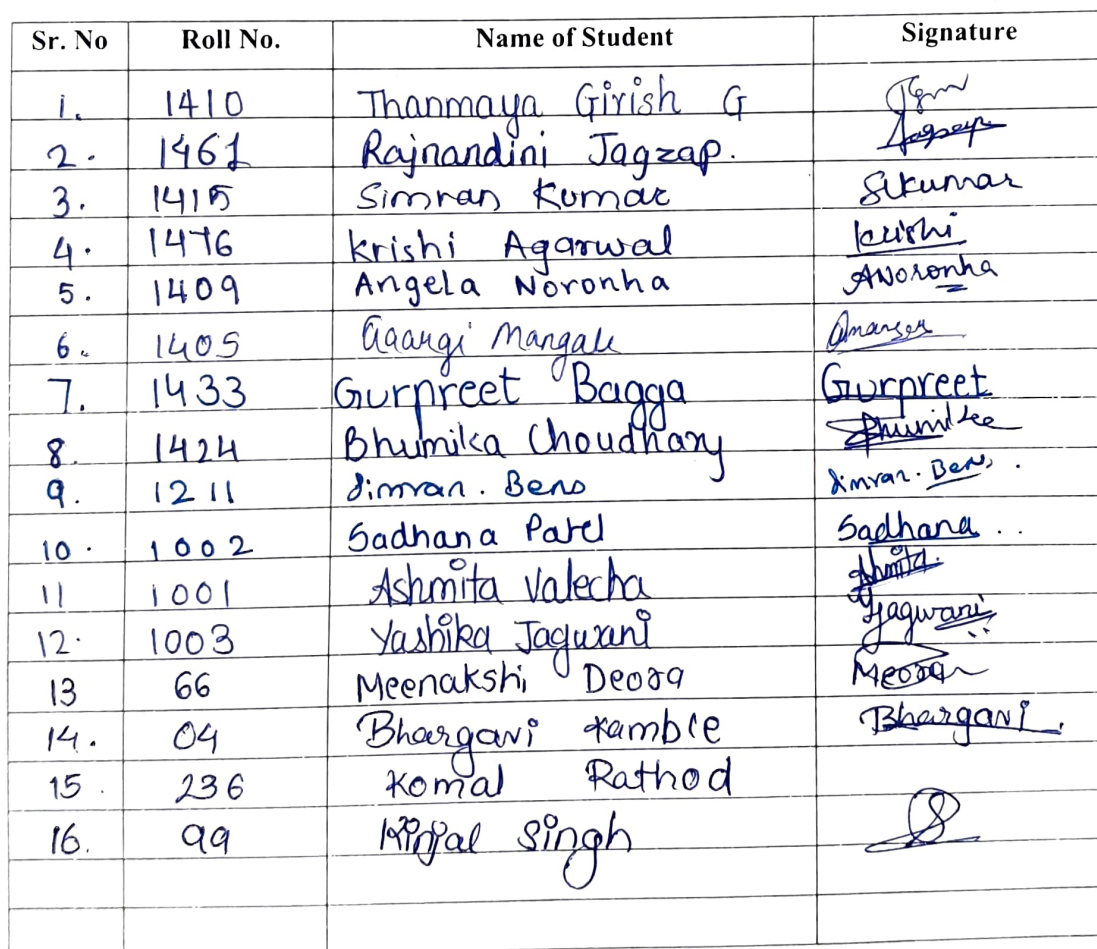 Sr. No Roll No. Name of Student Signature
1. 1410 Thanmaya Girish G
2. 1461 Rajnandini Jagzap.
3. 1415 Simran Kumar SKumar
4. 1476 Krishi Agarwal Krishi
5. 1409 Angela Noronha ANoronha
6. 1405 Gaargi Mangale
7. 1433 Gurpreet Bagga Gurpreet
8. 1424 Bhumika Choudhary Bhumika
9. 1211 Simran. Bens Simran. Bens.
10. 1002 Sadhana Patel Sadhana ..
11 1001 Ashmita Valecha Ashmita.
12. 1003 Yashika Jagwani YJagwani
13 66 Meenakshi Deora MDeora
14. 04 Bhargavi Kamble Bhargavi.
15. 236 Komal Rathod
16. 99 Kinjal Singh